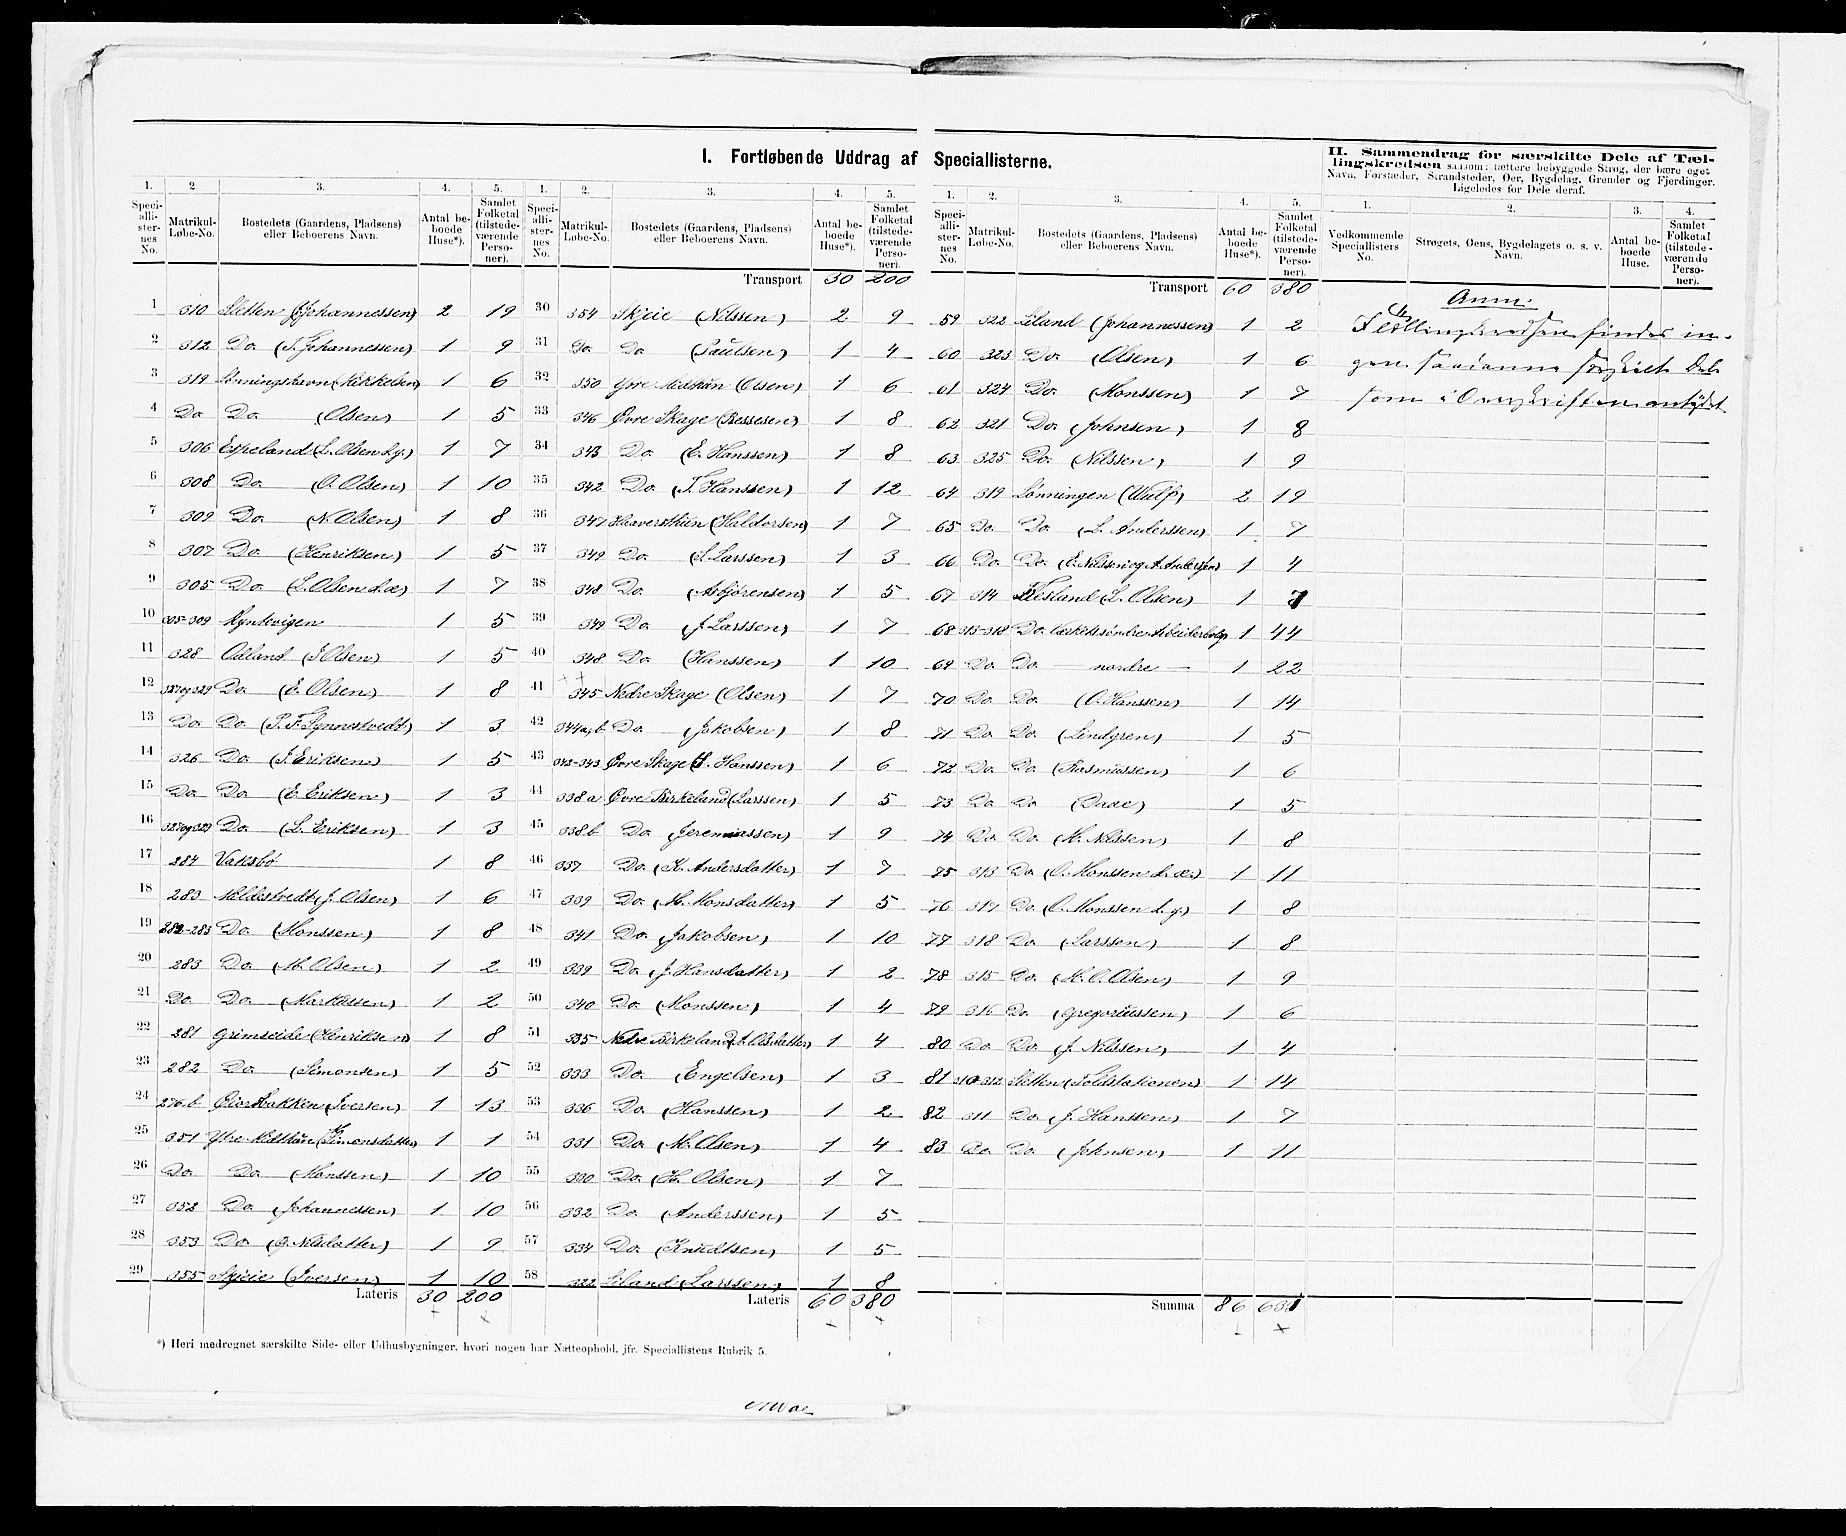 I. Fortløbende Uddrag af Speciallisterne.
1. 2 3. 4. 5.
Speci-alli-ster-nes No. Matrikul-Løbe-No. Bostedets (Gaardens, Pladsens) eller Beboerens Navn. Antal be-boede Huse*). Samlet Folketal (tilstede-værende Perso-ner).
1 310 Sletten (J Johannessen) 2 19
2 312 Do (T. Johannessen) 1 9
3 319 Lønningshavn (Mikkelsen) 1 6
4 Do Do (Olsen) 1 5
5 306 Espeland (L. Olsen d.y.) 1 7
6 308 Do (O. Olsen) 1 10
7 309 Do (N. Olsen) 1 8
8 307 Do (Henriksen) 1 5
9 305 Do (L. Olsen d.æ) 1 7
10 305-309 1 5
11 328 Odland (I Olsen) 1 5
12 327og329 Do (E. Olsen) 1 8
13 Do Do (P. F. Synnestvedt) 1 3
14 326 Do (J. Eriksen) 1 5
15 Do Do (E. Eriksen) 1 3
16 327og329 Do (L. Eriksen) 1 3
17 284 Vaksbø 1 8
18 283 Mildestvedt (J. Olsen) 1 6
19 282-283 Do (Monssen) 1 8
20 283 Do (M. Olsen) 1 2
21 Do Do (Markussen) 1 2
22 281 Grimseide (Henriksen) 1 8
23 282 Do (Simonsen) 1 5
24 276.b (Iversen) 1 13
25 351 Ytre (Simonsdatter) 1 1
26 Do Do (Monssen) 1 10
27 352 Do (Johannessen) 1 10
28 353 Do (G. Nilsdatter) 1 9
29 355 Skjeie (Iversen) 1 10
Lateris 30 200
1. 2. 3. 4. 5.
Speci-alli-ster-nes No. Matrikul-Løbe-No. Bostedets (Gaardens, Pladsens) eller Beboerens Navn. Antal be-boede Huse*). Samlet Folketal (tilstede-værende Perso-ner).
Transport 30 200
30 354 Skjeie (Nilssen) 2 9
31 Do Do (Paulsen) 1 4
32 350 (Olsen) 1 6
33 346 Øvre Skage (Bessesen) 1 8
34 343 Do (E. Hanssen) 1 8
35 342 Do (T. Hanssen) 1 12
36 347 (Haldorsen) 1 7
37 349 Do (S Larssen) 1 3
38 348 Do (Asbjørensen) 1 5
39 349 Do (J Larssen) 1 7
40 348 Do (Hanssen) 1 10
41 345 Nedre Skage (Olsen) 1 7
42 344a,b Do (Jakobsen) 1 8
43 342-343 Øvre Skage (J. Hanssen) 1 6
44 338a Øvre Birkeland (Larssen) 1 5
45 338b Do (Jeremiassen) 1 9
46 337 Do (K. Andersdatter) 1 7
47 339 Do (M. Monsdatter) 1 5
48 341 Do (Jakobsen) 1 10
49 339 Do (J. Hansdatter) 1 2
50 340 Do (Monssen) 1 4
51 335 Nedre Birkeland (A Olsdatter) 1 4
52 333 Do (Engelsen) 1 3
53 336 Do (Hanssen) 1 2
54 331 Do (M. Olsen) 1 4
55 330 Do (H. Olsen) 1 7
56 332 Do (Anderssen) 1 5
57 334 Do (Knudtsen) 1 5
58 322 Liland (Larssen) 1 8
Lateris 60 380
1. 2. 3. 4. 5.
Speci-alli-ster-nes No. Matrikul-Løbe-No. Bostedets (Gaardens, Pladsens) eller Beboerens Navn. Antal be-boede Huse*). Samlet Folketal (tilstede-værende Perso-ner).
Transport 60 380
59 322 Liland (Johannessen) 1 2
60 323 Do (Olsen) 1 6
61 324 Do (Monssen) 1 7
62 321 Do (Johnsen) 1 8
63 325 Do (Nilssen) 1 9
64 319 Lønningen (Wulf) 2 19
65 Do Do (L. Anderssen) 1 7
66 Do Do (E. Nilssen og A. Andersen) 1 4
67 314 Flesland (L. Olsen) 1 7
68 313-318 Do 1 44
69 Do Do — nordre — 1 22
70 Do Do (O. Hanssen) 1 14
71 Do Do (Lindgren) 1 5
72 Do Do (Rasmussen) 1 6
73 Do Do (Daae) 1 5
74 Do Do (H. Nilssen) 1 8
75 313 Do (O. Monssen d.æ.) 1 11
76 317 Do (O. Monssen d.y.) 1 8
77 318 Do (Larssen) 1 8
78 315 Do (H. O. Olsen) 1 9
79 316 Do (Gregoriussen) 1 6
80 Do Do (J. Nilssen) 1 4
81 310-312 Sletten (Toldstationen) 1 14
82 311 Do (J. Hanssen) 1 7
83 Do Do (Johnsen) 1 11
Summa 86 631
II. Sammendrag for særskilte Dele af Tæl-
lingskredsen saasom: tættere bebyggede Strøg, der bære eget
Navn, Forstæder, Strandsteder, Øer, Bygdelag, Grender og Fjerdinger.
Ligeledes for Dele deraf.
1. 2. 3. 4.
Vedkommende Speciallisters No. Strøgets, Øens, Bygdelagets o. s. v. Navn. Antal be-boede Huse. Samlet Folketal (tilstede-værende Perso-ner).
Anm:
I Tællingskredsen findes in-
gen saadanne særskilt Del
som i Overskriften antydet
*) Heri medregnet særskilte Side- eller Udhusbygninger, hvori nogen har Natteophold, jfr. Speciallistens Rubrik 5.